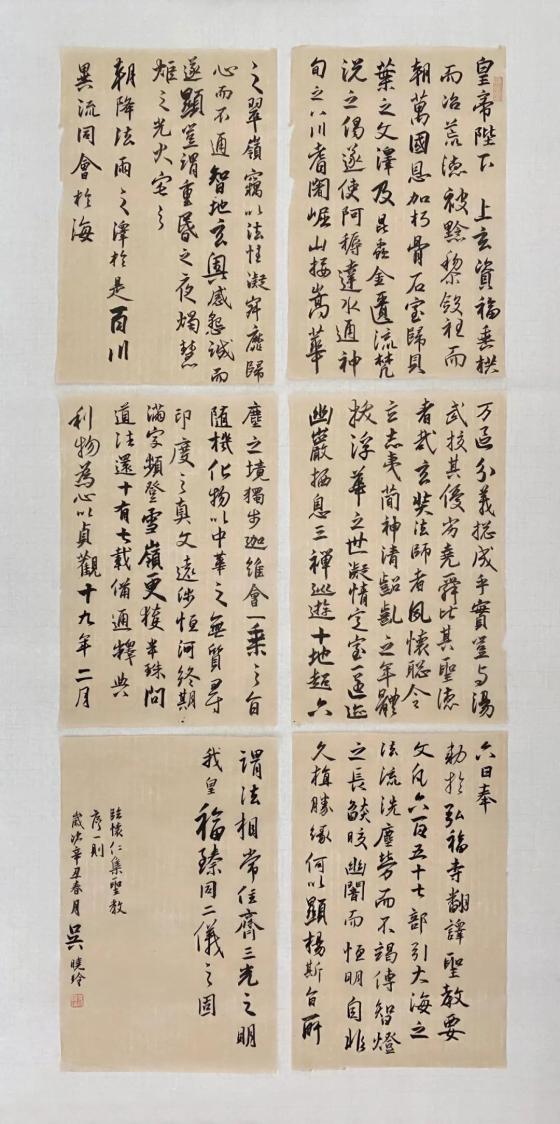 皇帝陛下上玄資福垂拱
而治荒德被黔黎斂衽而
朝萬國恩加朽骨石室歸貝
葉之文澤及昆蟲金匱流梵
説之偈遂使阿耨達水通神
旬之八川耆闍崛山接嵩華
之翠嶺竊以法性凝寂靡歸
心而不通智地玄奧感懇誠而
遂顯豈謂重昏之夜燭慧
炬之光火宅之
朝降法雨之澤於是百川
異流同會於海
万區分義揔成乎實豈与湯
武校其優劣堯舜比其聖德
者哉玄奘法師者夙懷聡令
立志夷簡神清齠齔之年體
拔浮華之世凝情定室匿迹
幽巖栖息三禪巡遊十地超六
塵之境獨步迦維會一乘之旨
随機化物以中華之無質尋
印度之真文遠涉恒河終期
滿字頻登雪嶺更獲半珠問
道法還十有七載備通釋典
利物為心以貞觀十九年二月
六日奉
勅於弘福寺翻譯聖教要
文凡六百五十七部引大海之
法流洗塵勞而不竭傳智燈
之長燄皎幽闇而恒明自非
久植勝緣何以顯揚斯旨所
謂法相常住齊三光之明
我皇福臻同二儀之固
臨懷仁集聖教
序一則
歲次辛丑春月吳曉玲